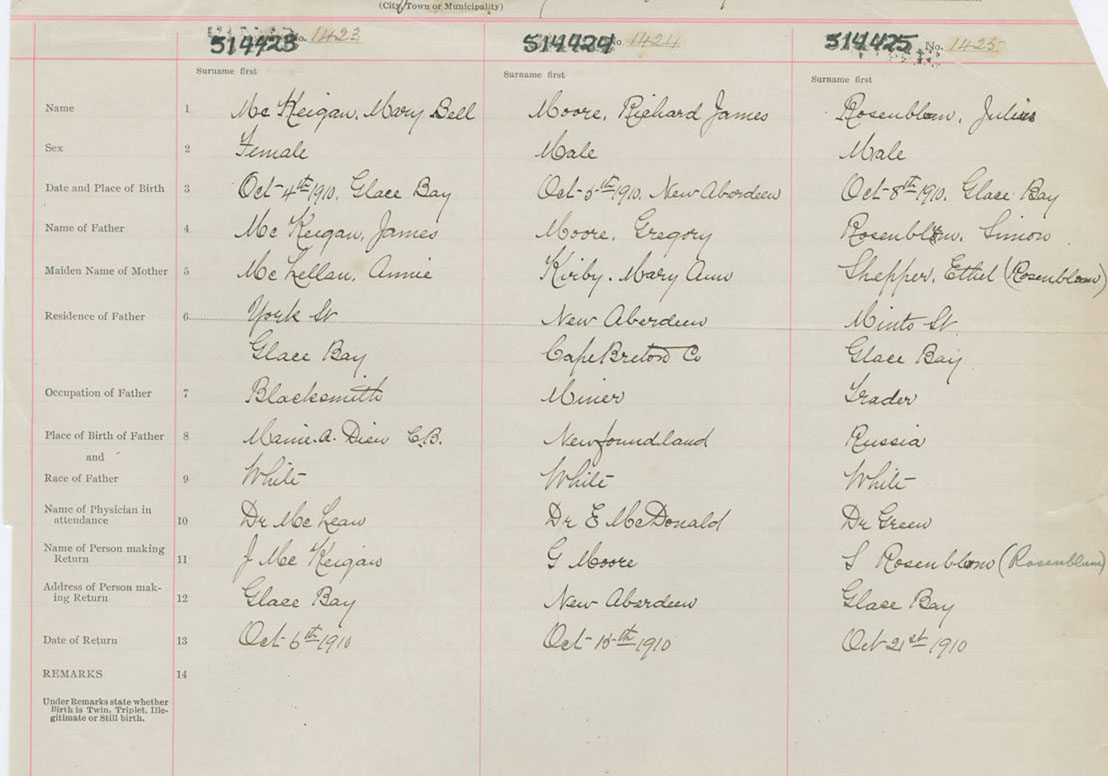 (City, Town or Municipality)
514423 No. 1423 514424 No 1424 514425 No. 1425
Surname first Surname first Surname first
Name 1 Mc Keigan, Mary Bell Moore, Richard James Rosenblum, Julius
Sex 2 Female Male Male
Date and Place of Birth 3 Oct-4th 1910, Glace Bay Oct-5-th 1910, New Aberdeen Oct-8th 1910, Glace Bay
Name of Father 4 Mc Keigan, James Moore, Gregory Rosenblum, Simon
Maiden Name of Mother 5 Mc Lellan, Annie Kirby, Mary Ann Shepper, Ethel (Rosenbloom)
Residence of Father 6 York St New Aberdeen Minto St.
Glace Bay Cape Breton Co Glace Bay
Occupation of Father 7 Blacksmith Miner Trader
Place of Birth of Father 8 C.B. Newfoundland Russia
and
Race of Father 9 White White White
Name of Physician in
attendance 10 Dr Mc Lean Dr E McDonald Dr Green
Name of Person making
Return 11 J Mc Keigan G Moore S Rosenblum (Rosenblum)
Address of Person mak-
ing Return 12 Glace Bay New Aberdeen Glace Bay
Date of Return 13 Oct-6th 1910 Oct-15-th 1910 Oct 21st 1910
REMARKS 14
Under Remarks state whether
Birth is Twin, Triplet, Ille-
gitimate or Still birth.